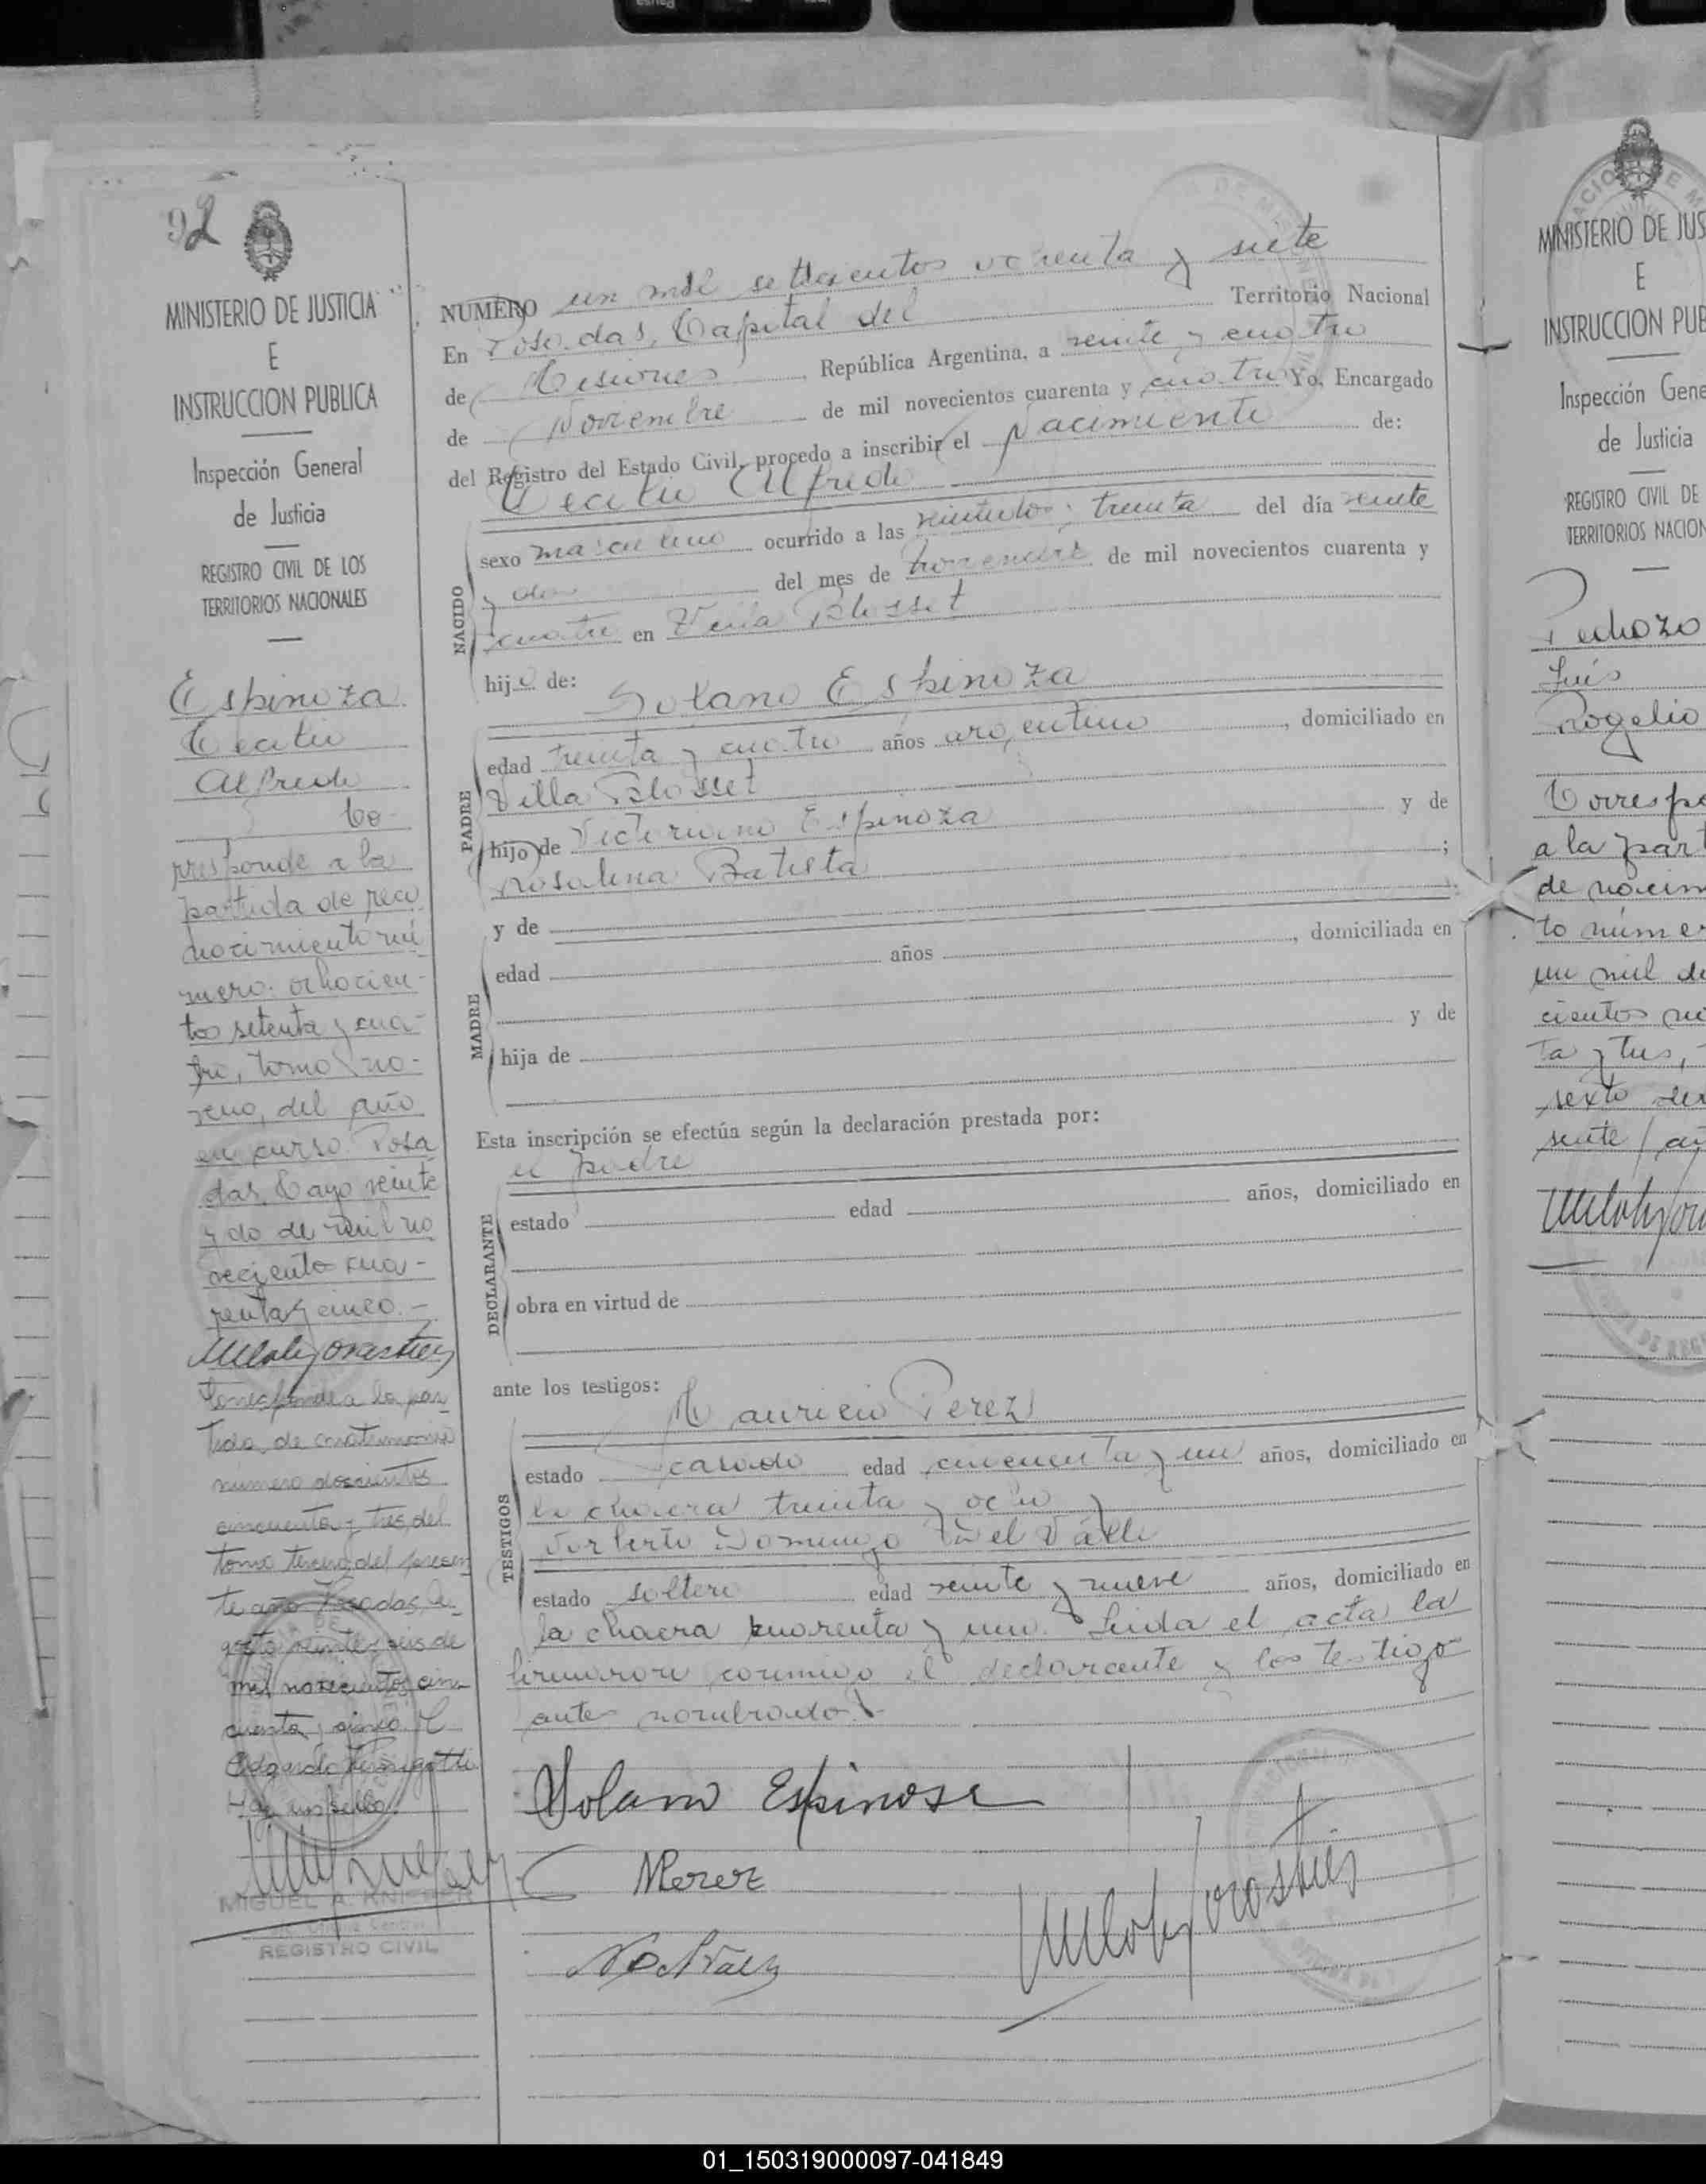 92
MINISTERIO DE JUSTICIA
E
INSTRUCCION PUBLICA
Inspección General
de Justicia
REGISTRO CIVIL DE LOS
TERRITORIOS NACIONALES
Espinoza
Cecilio
Alfredo
Co-
rresponde a la
partida de reco
nocimiento nú
mero: ochocien-
tos setenta y cua-
tro, tomo no-
veno, del año
en curso. Posa
das, Mayo veinte
y do de mil no
veciento cua-
renta y cinco.-
Corresponde a la par
tida de matrimonio
número doscientos
cincuenta y tres del
tomo tercero del presen
te año Posadas, A-
gosto veinte y seis de
mil novecientos cin-
cuenta y cinco. F
Hay un sello.
MIGUEL A. KNIEPER
REGISTRO CIVIL
NUMERO un mil setecientos ochenta y siete
En Posadas, Capital del Territorio Nacional
de Misiones República Argentina, a veinte y cuatro
de Noviembre de mil novecientos cuarenta y cuatro Yo, Encargado
del Registro del Estado Civil, procedo a inscribir el Nacimiento de:
Cecilio Alfredo
NACIDO
sexo masculino ocurrido a las veintidos y treinta del día veinte
y dos del mes de noviembre de mil novecientos cuarenta y
cuatro en Villa Blosset
hijo de: Solano Espinoza
PADRE
edad treinta y cuatro años argentino, domiciliado en
Villa Blosset
hijo de Victoriano Espinoza y de
Rosalina Batista ;
y de
MADRE
edad años , domiciliada en
hija de y de
Esta inscripción se efectúa según la declaración prestada por:
el padre
DECLARANTE
estado edad años, domiciliado en
obra en virtud de
ante los testigos:
Mauricio Perez
TESTIGOS
estado casado edad cincuenta y un años, domiciliado en
la chacra treinta y ocho y
Norberto Domingo Del Valle
estado soltero edad veinte y nueve años, domiciliado en
la chacra cuarenta y uno. Leida el acta la
firmaron conmigo el declarante y los testigo
ante nombrado.-
Solano Espinosa
MPerez
MINISTERIO DE JUS
E
INSTRUCCION PUB
Inspección Gene
de Justicia
REGISTRO CIVIL DE
TERRITORIOS NACION
Pedrozo
Luis
Rogelio
Correspo
a la part
de nacim
to númer
un mil de
cientos no
ta y tres,
sexto del
sente añ
01_150319000097-041849